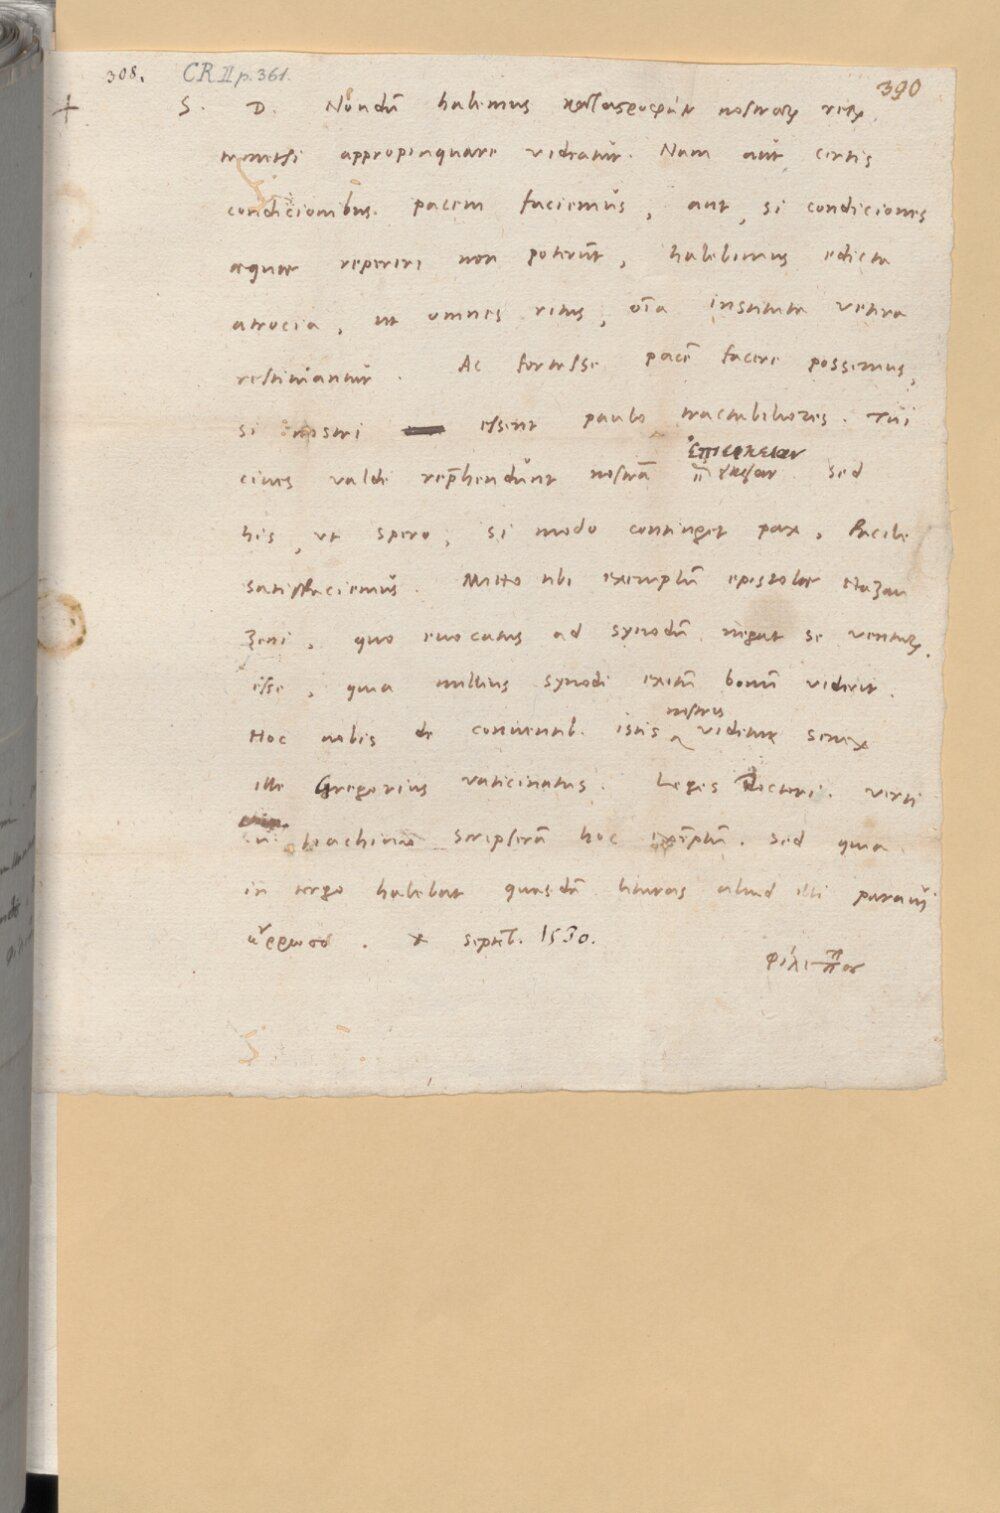 308. CR II p. 361.
390
S. D. Nondū habemus καταστροφὴν nostrarꝝ rerꝝ,
tametsi appropinquare videatur. Nam aut certis
condicionibus pacem faciemus, aut, si condiciones
aequae reperiri non poterūt, habebimus edicta
atrocia, ut omnes ritus, oīa instituta vetera
restituantur. Ac fortasse pacē facere possemus,
si nostri essent paulo tractabiliores. Tui
cives valde repͬhendūnt nostrā ἐπιείκειαν sed
his, ut spero, si modo continget pax, facile
satisfaciemus. Mitto tibi exemplū epistolae Nazan
zeni, quo evocatus ad synodū negat se venturꝝ
esse, quia nullius synodi exitū bonū viderit.
Hoc nobis de conventib. istis nostris videtur senex
ille Gregorius vaticinatus. Leges Doctori. verti
enim. Ioachimo scripserā hoc exēplū. sed quia
in tergo habebat quasdā lituras aliud illi paravi
ἔρρωσο. Septēb. 1530.
Φίλιππος